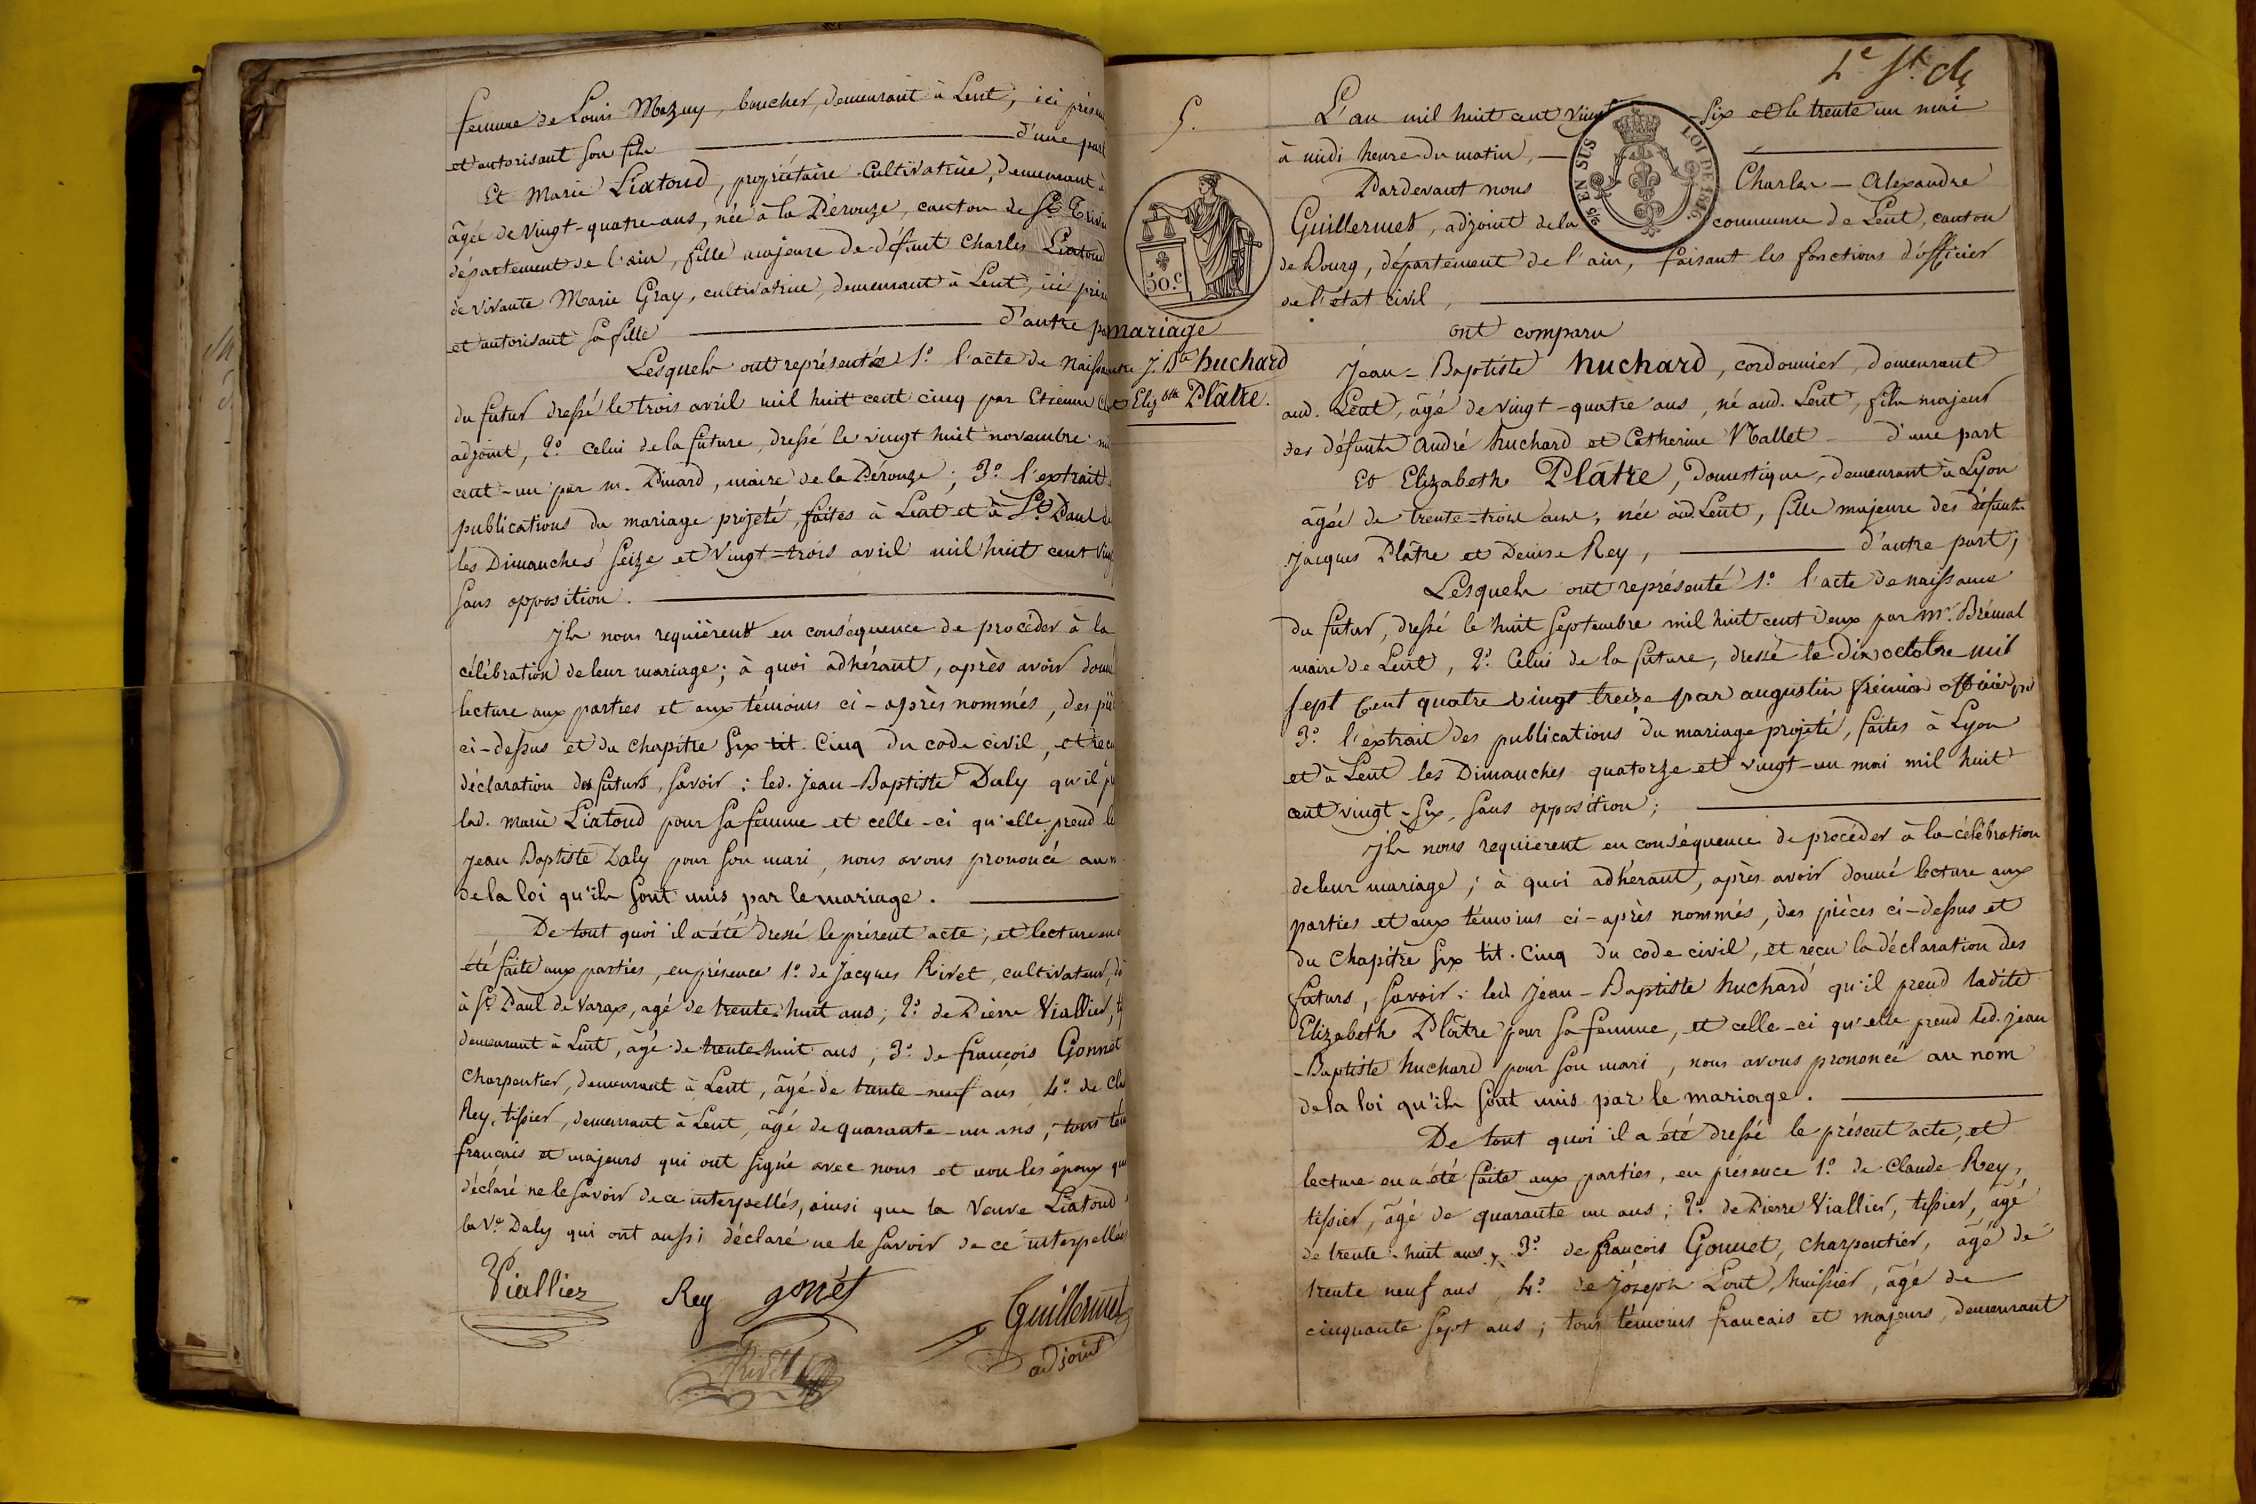 femme de Louis Mazuy, boucher, demeurant à Lent, ici présen
et autorisant son fils d'une part
Et Marie Liatoud, propriétaire Cultivatrice, demeurant à
âgée de vingt-quatre ans, née à la Pérouze, canton de St Trivier
département de l'ain, fille majeure de défunt Charles Liatoud
& vivante Marie Gray, cultivatrice, demeurant à Lent, ici prés
et autorisant sa fille d'autre pa
Lesquels ont représentés 1º l'acte de Naissa
du futur dressé le trois avril mil huit cent cinq par Etienne
adjoint, 2º celui de la future, dressé le vingt huit novembre m
cent-un par m. Dinard, maire de la Pérouze; 3º l'extrait
publications du mariage projeté, faites à Lent et à St Paul de
les Dimanches Seize et vingt-trois avril mil huit cent vin
sans opposition.
Ils nous requièrent en conséquence de procéder à la
célébration de leur mariage; à quoi adhérant, après avoir donn
lecture aux parties et aux témoins ci-après nommés, des piè
ci-dessus et du chapitre Six tit. Cinq du code civil, et reçu
déclaration des futurs, savoir: led. Jean-Baptiste Daly qu'il p
lad. marie Liatoud pour sa femme et celle-ci qu'elle prend le
Jean Baptiste Daly pour son mari, nous avons prononcé au n
de la loi qu'ils sont unis par le mariage.
De tout quoi il a été dressé le présent acte, et lecture en a
été faite aux parties, en présence 1º de Jacques Rivet, cultivateur, d
à St Paul de Varax, agé de trente huit ans; 2º de Pierre Viallier, t
demeurant à Lent, âgé de trente huit ans; 3º de françois Gonnet
Charpentier, demeurant à Lent, âgé de trente-neuf ans 4º de Cla
Rey, tissier, demeurant à Lent, âgé de quarante-un ans; tous tém
français et majeurs qui ont signé avec nous et non les époux qui
déclaré ne le savoir de ce interpellés, ainsi que la Veuve Liatoud
la Ve Daly qui ont aussi déclaré ne le savoir de ce interpellés
Viallier Rey gonet Guillermet
Rivet adjoint
2e St.
5.
50 c
2/5 EN SUS LOI DE 1816.
mariage
entre J. Bte huchard
et Elizbth Plâtre.
L'an mil huit cent vingt-six et le trente un mai
à midi heure du matin,
Pardevant nous Charles-Alexandre
Guillermet, adjoint de la commune de Lent, canton
de Bourg, département de l'ain, faisant les fonctions d'officier
de l'état civil,
ont comparu
Jean-Baptiste huchard, cordonnier, demeurant
aud. Lent, âgé de vingt-quatre ans, né aud. Lent, fils majeur
des défunts andré huchard et Catherine Mallet d'une part
Et Elizabeth Plâtre, Domestique, demeurant à Lyon
âgée de trente-trois ans, née aud Lent, fille majeure des défunts
Jacques Plâtre et Denise Rey, d'autre part;
Lesquels ont représenté 1º l'acte de naissance
du futur, dressé le huit Septembre mil huit cent deux par Mr. Brémal
maire de Lent, 2º Celui de la future, dressé le Dix octobre mil
sept Cent quatre vingt treize par augustin frémion officier pu
3º l'extrait des publications du mariage projeté, faites à Lyon
et à Lent les Dimanches quatorze et vingt-un mai mil huit
cent vingt-six, sans opposition;
Ils nous requièrent en conséquence de procéder à la célébration
de leur mariage; à quoi adhérant, après avoir donné lecture aux
parties et aux témoins ci-après nommés, des pièces ci-dessus et
du Chapitre Six tit. Cinq du code civil, et reçu la déclaration des
futurs, Savoir: led Jean-Baptiste huchard qu'il prend ladite
Elizabeth Plâtre pour sa femme, et celle-ci qu'elle prend led. jean
-Baptiste huchard pour son mari, nous avons prononcé au nom
de la loi qu'ils sont unis par le mariage.
De tout quoi il a été dressé le présent acte, et
lecture en a été faite aux parties, en présence 1º de Claude Rey,
tissier, âgé de quarante un ans; 2º de Pierre Viallier, tissier, âgé
de trente-huit ans, 3º de françois Gonnet, charpentier, âgé de
trente neuf ans 4º de Joseph Lout, huissier, âgé de
cinquante sept ans; tous témoins français et majeurs, demeurant